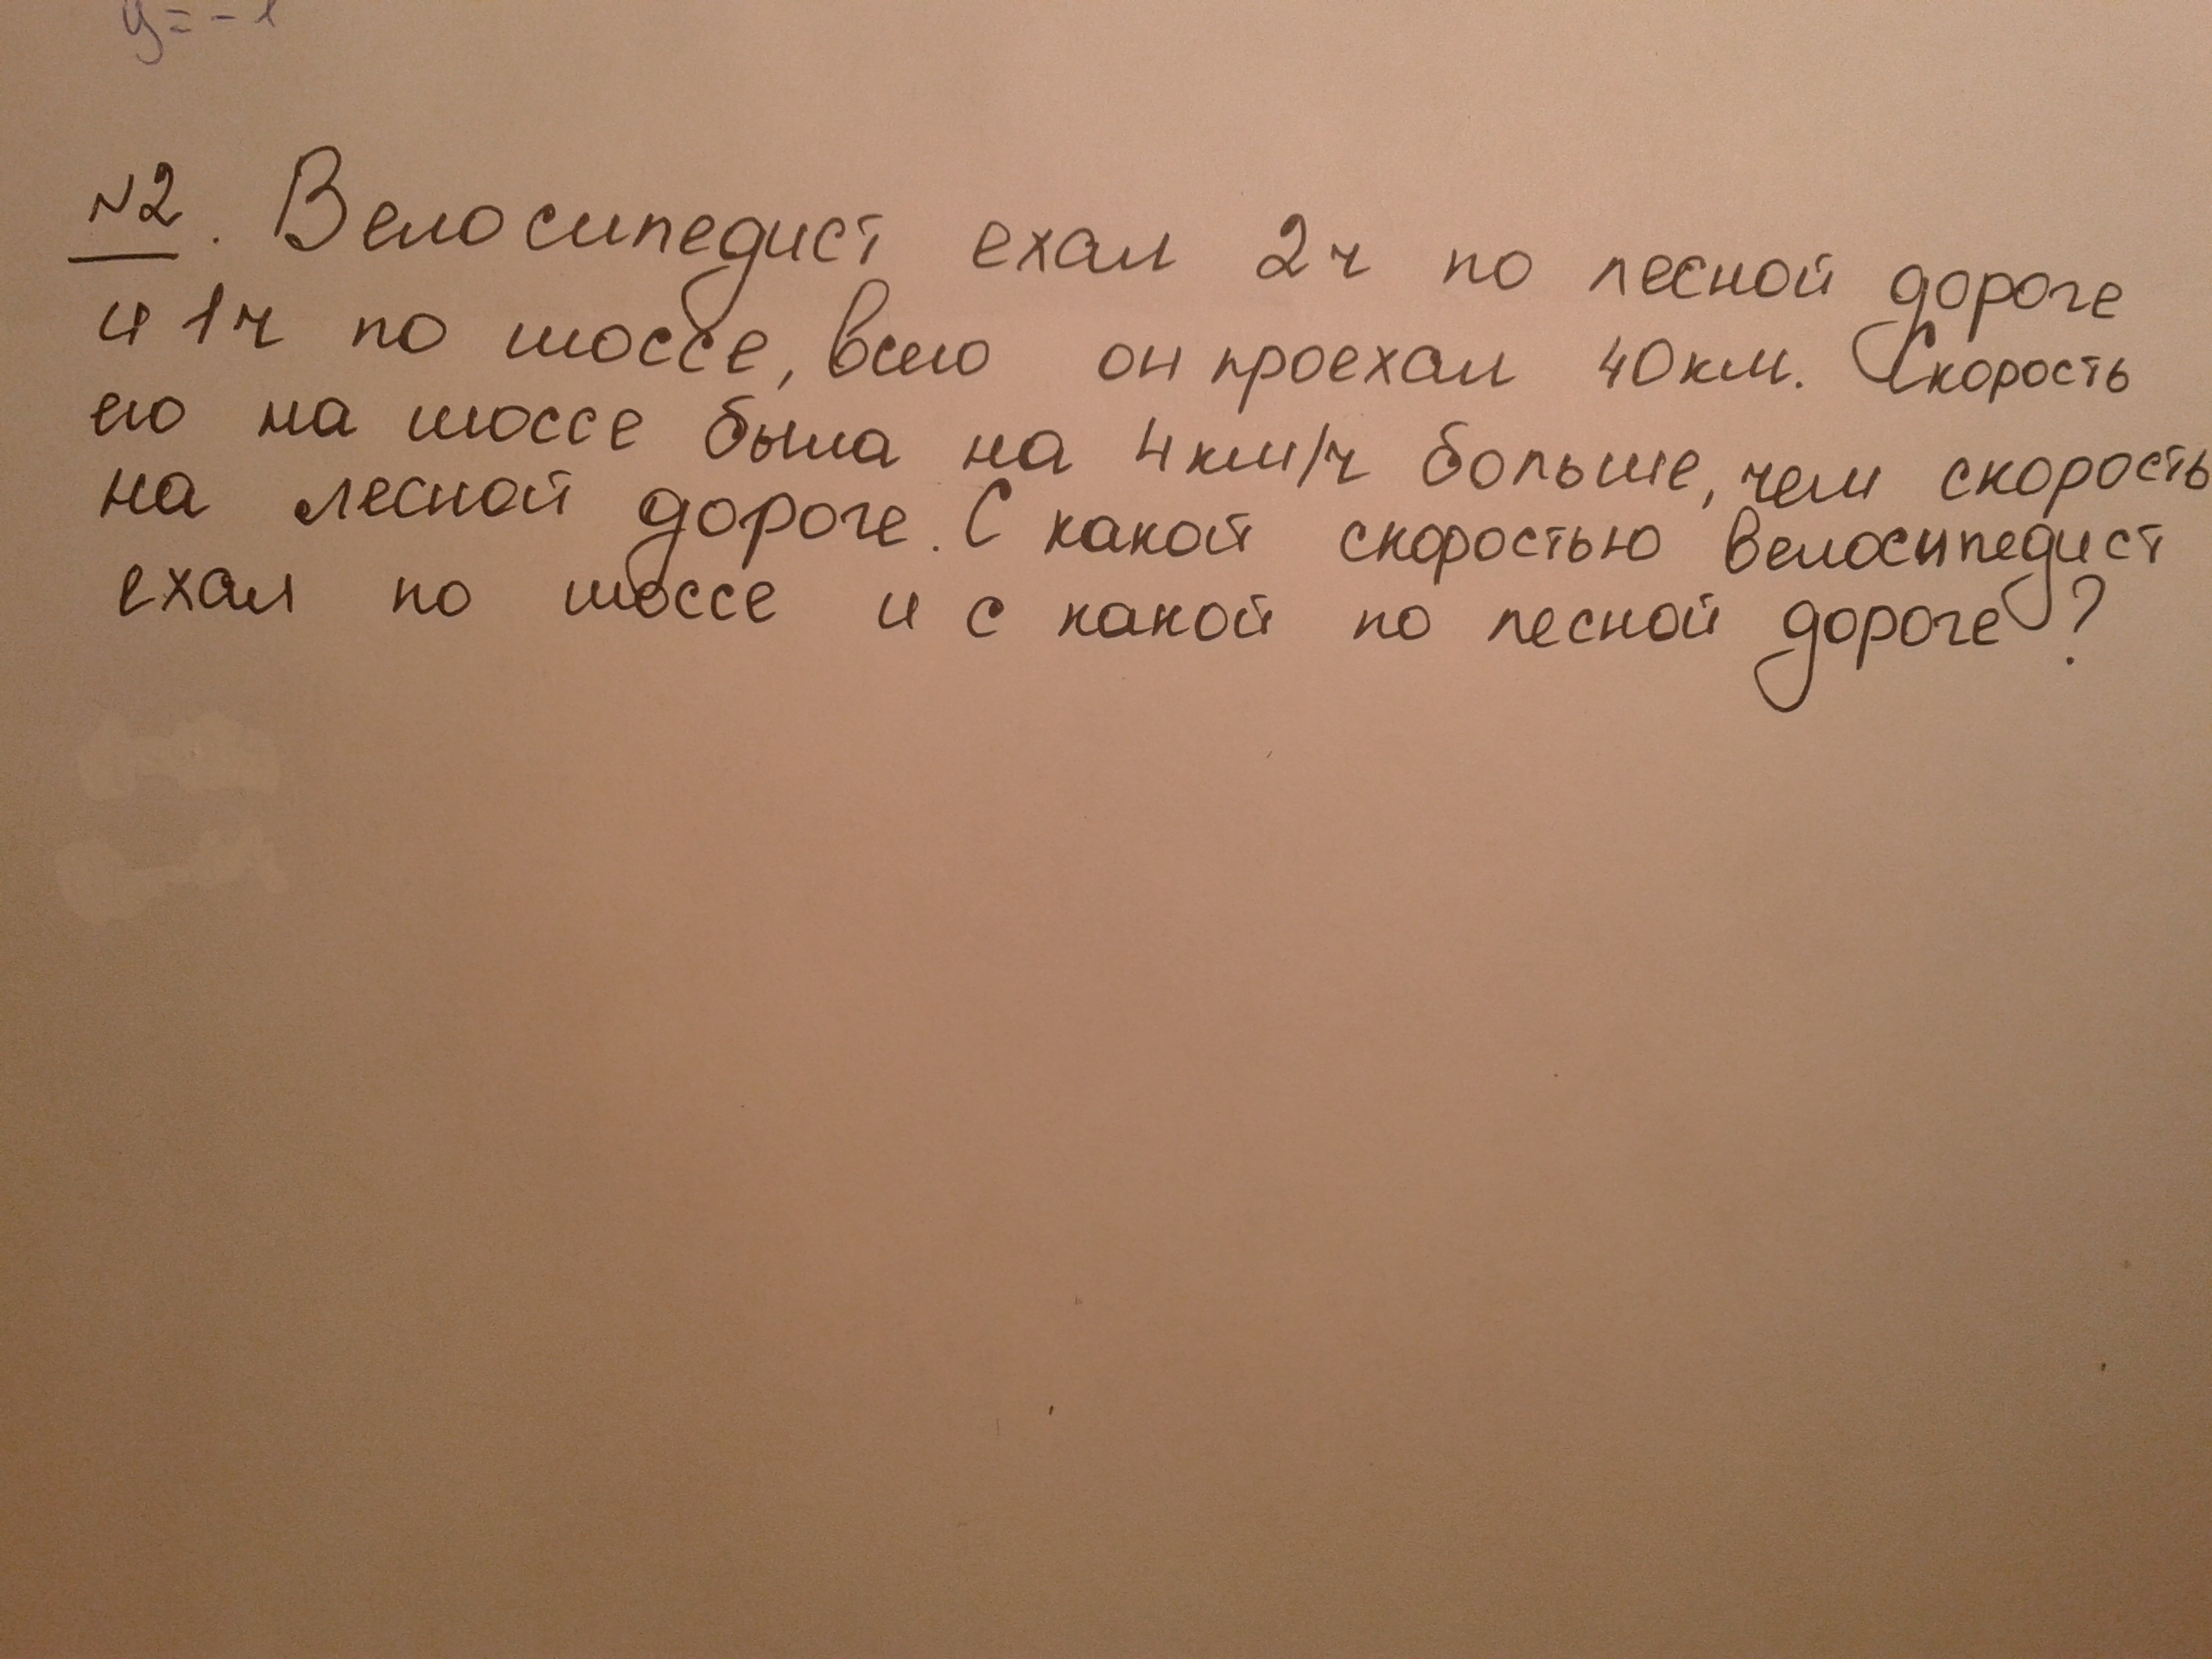 y = - 1
№2. Велосипедист ехал 2ч по лесной дороге
и 1ч по шоссе, всего он проехал 40км. Скорость
его на шоссе была на 4км/ч больше, чем скорость
на лесной дороге. С какой скоростью велосипедист
ехал по шоссе и с какой по лесной дороге?